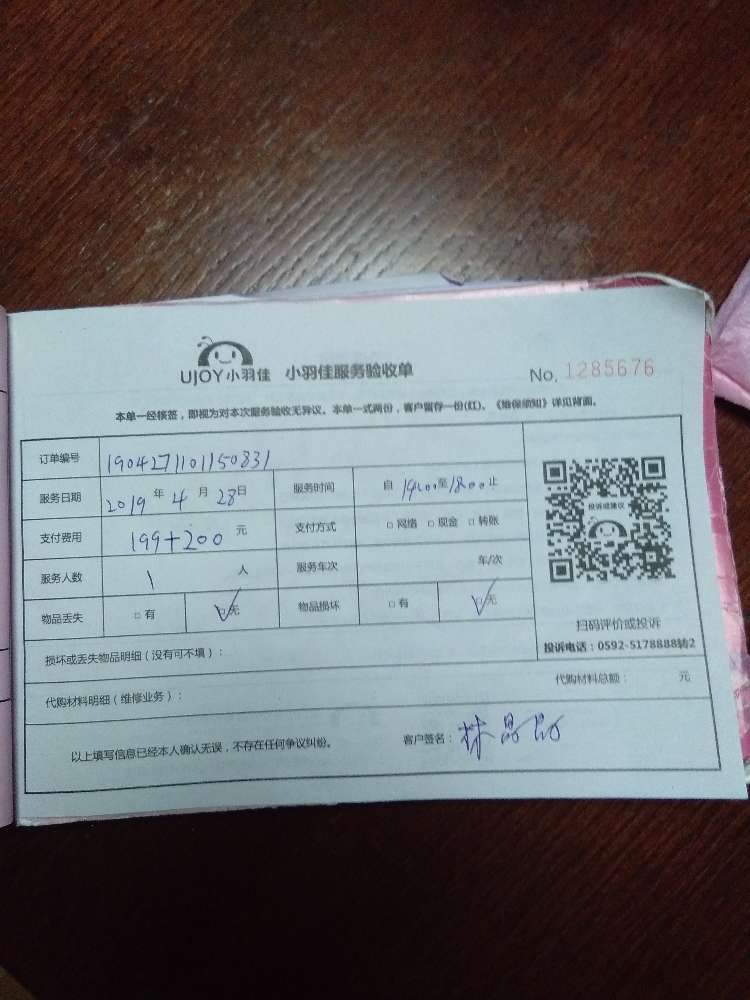 UJOY小羽佳 小羽佳服务验收单 No. 1285676
本单一经核签，即视为对本次服务验收无异议。本单一式两份，客户留存一份(红)、《维保须知》详见背面。
订单编号 1904271101150831
服务日期 2019 年 4 月 28 日 服务时间 自 14:00 至 18:00 止
支付费用 199+200 元 支付方式 □ 网络 □ 现金 □ 转账
服务人数 1 人 服务车次 车/次
物品丢失 □ 有 □ 无 物品损坏 □ 有 □ 无
投诉或建议
扫码评价或投诉
投诉电话：0592-5178888转2
损坏或丢失物品明细（没有可不填）：
代购材料明细（维修业务）： 代购材料总额： 元
以上填写信息已经本人确认无误，不存在任何争议纠纷。 客户签名：林晶晶